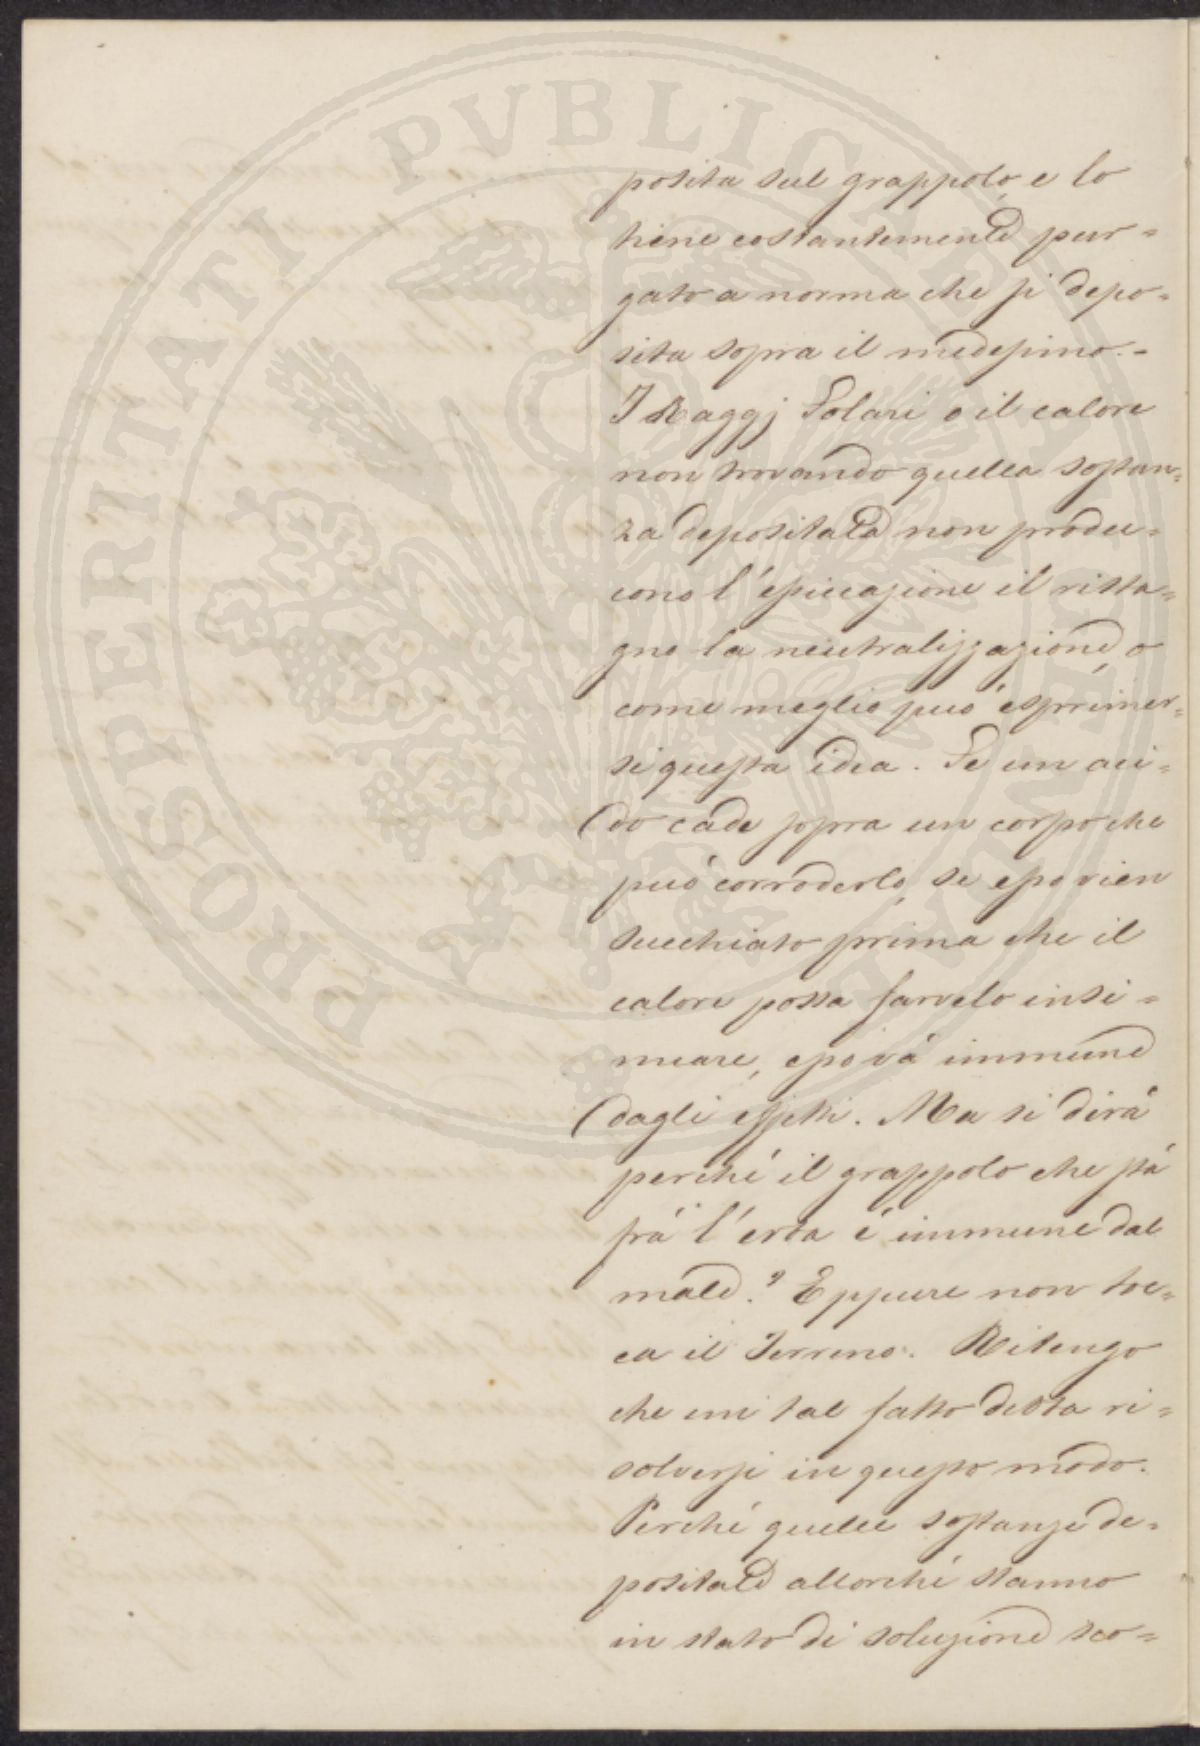 posita sul grappolo, e lo
tiene costantemente pur=
gato a norma che si depo=
sita sopra il medesimo.=
I Raggj Solari o il calore
non trovando quella sostan=
za depositata non produ=
cono l'essiccazione il rista=
gno la neutralizzazione, o
come meglio può esprimer=
si questa idea. Se un aci=
do cade sopra un corpo che
può corroderlo, se esso vien
succhiato prima che il
calore possa farvelo insi=
nuare, esso và immune
dagli effetti. Ma si dirà
perchè il grappolo che stà
frà l'erba è immune dal
male? Eppure non toc=
ca il Terreno. Ritengo
che un tal fatto debba ri=
solversi in questo modo.
Perchè quelle sostanze de=
positate allorchè stanno
in stato di soluzione sco=
PROSPERITATI PVBLICAE